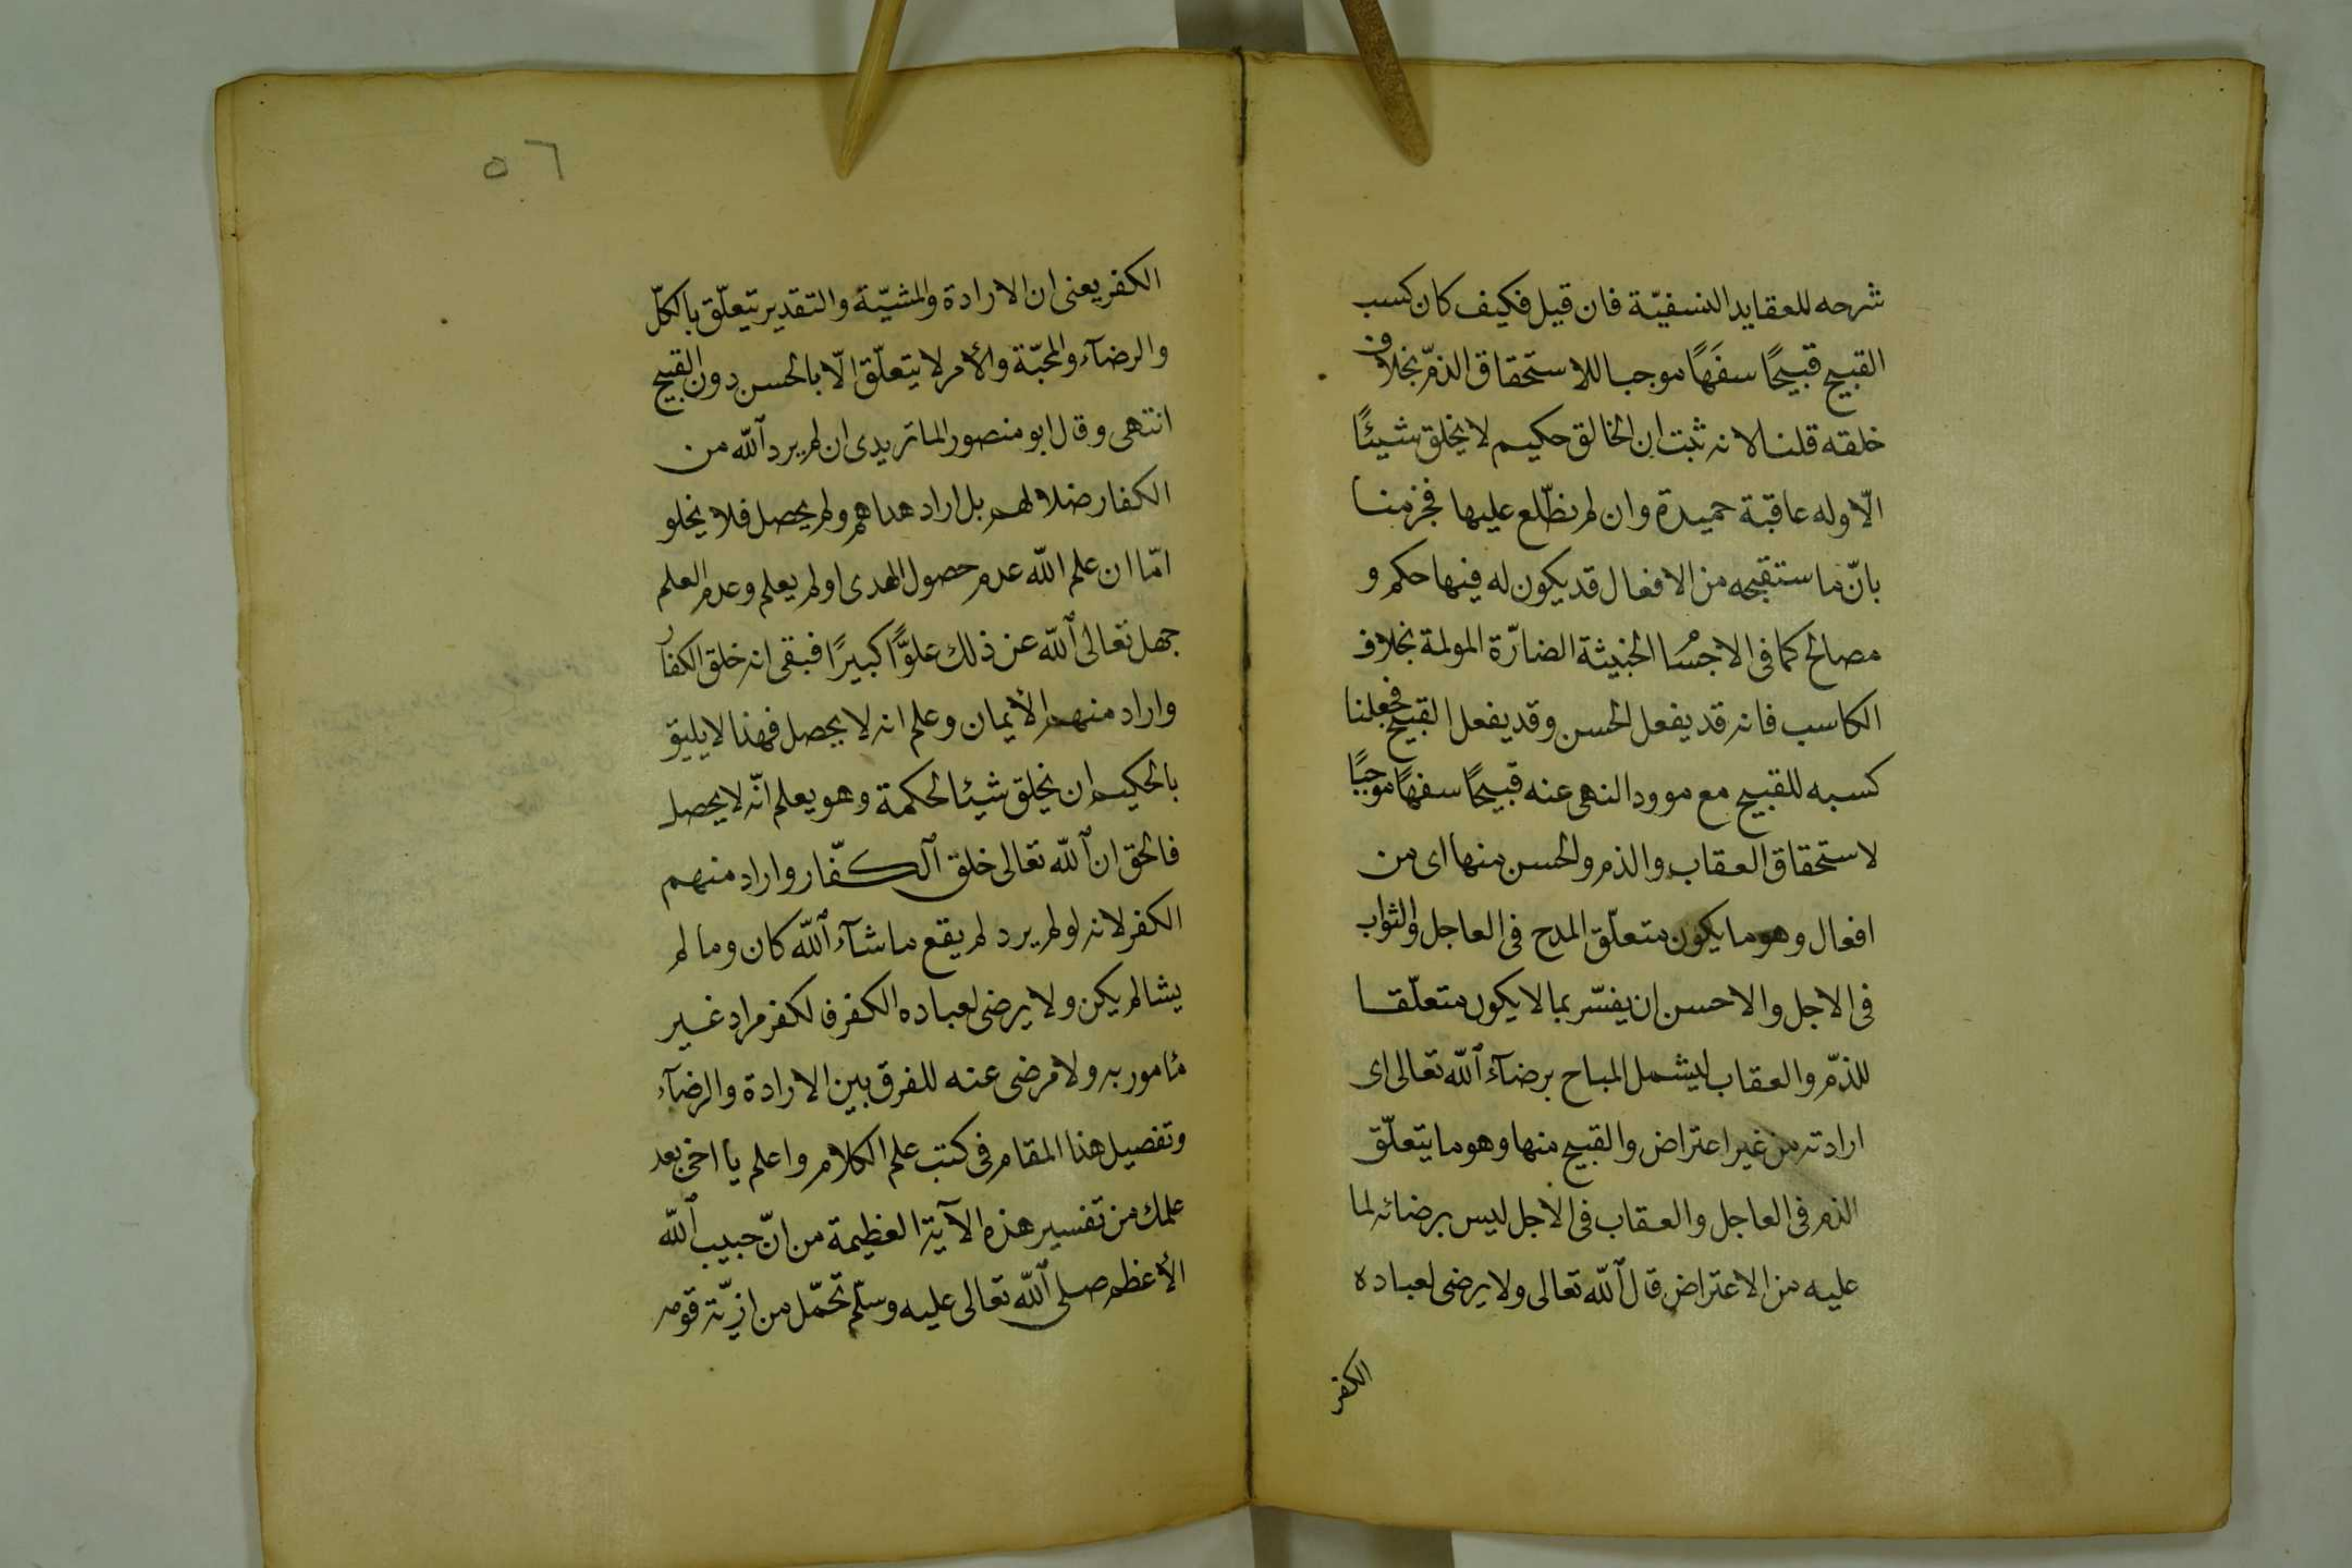 شرحه للعقايد النسفيّة فان قيل فكيف كان كسب
القبيح قبيحًا سفَهًا موجبا للاستحقاق الذمّ بخلاف
خلقه قلنا لانه ثبت ان الخالق حكيم لا يخلق شيئًا
الّا وله عاقبة حميدة وان لم نطّلع عليها فجزمنا
بانّ ما ستقبحه من الافعال قد يكون له فيها حكم و
مصالح كما فى الاجسُا الخبيثة الضارّة المولمة بخلاف
الكاسب فانه قد يفعل الحسن وقد يفعل القبيح فجعلنا
كسبه للقبيح مع موود النهى عنه قبيحًا سفهًا موجبًا
لاستحقاق العقاب والذم والحسن منها اى من
افعال وهو ما يكون متعلّق المدح فى العاجل والثواب
فى الاجل والاحسن ان يفسّر بما لا يكون متعلّقا
للذمّ والعقاب ليشمل المباح برضآء الله تعالى اى
ارادته من غير اعتراض والقبيح منها وهو ما يتعلّق
الذم فى العاجل والعقاب فى الاجل ليس برضائه لما
عليه من الاعتراض قال الله تعالى ولا يرضى لعباده
الكفر
٥٦
الكفر يعنى ان الارادة والمشيّة والتقدير تيعلّق بالكلّ
والرضآء والمحبّة والأمر لا يتعلّق الّا بالحسن دون القبيح
انتهى وقال ابو منصور الماتريدى ان لم يرد الله من
الكفار ضلالهم بل اراد هداهم ولم يحصل فلا يخلو
امّا ان علم الله عدم حصول الهدى او لم يعلم وعدم العلم
جهل تعالى الله عن ذلك علوًّا كبيرًا فبقى انه خلق الكفار
واراد منهم الأيمان وعلم انه لا يحصل فهذا لا يليق
بالحكيم ان يخلق شيئا لحكمة وهو يعلم انّه لا يحصل
فالحق ان الله تعالى خلق الكفّار واراد منهم
الكفر لانه لو لم يرد لم يقع ما شآء الله كان وما لم
يشا لم يكن ولا يرضى لعباده الكفر فالكفر مراد غير
مأمور به ولا مرضى عنه للفرق بين الارادة والرضآء
وتفصيل هذا المقام فى كتب علم الكلام واعلم يا اخى بعد
علمك من تفسير هذه الآية العظيمة من انّ حبيب الله
الأعظم صلى الله تعالى عليه وسلّم تحمّل من اذيّة قومه